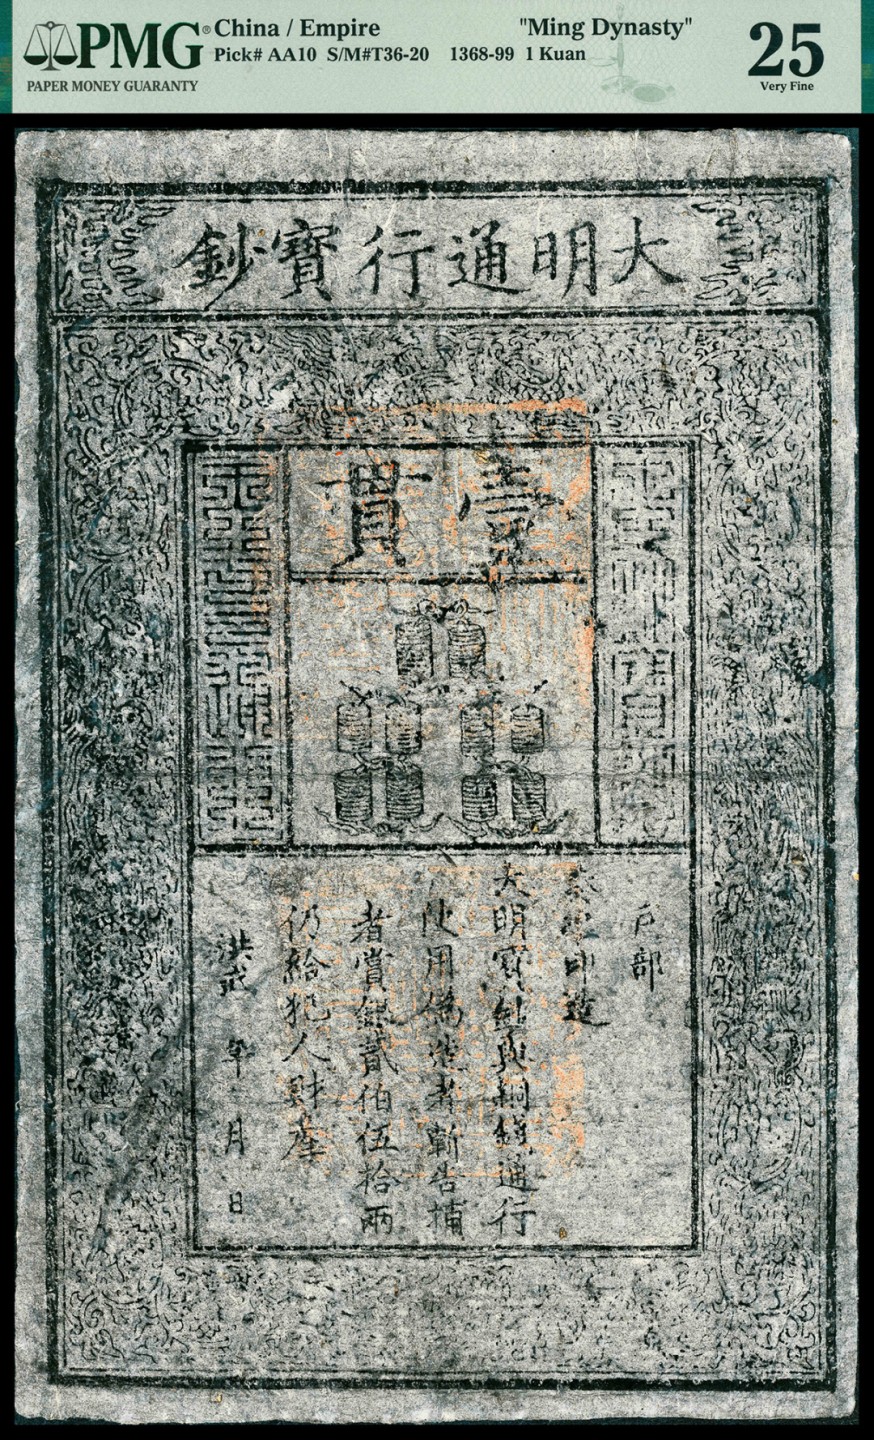 PMG®
PAPER MONEY GUARANTY
China / Empire "Ming Dynasty"
Pick# AA10 S/M#T36-20 1368-99 1 Kuan
25
Very Fine
大明通行寶鈔
壹貫
戶部
奏准印造
大明寶鈔與銅錢通行
使用偽造者斬告捕
者賞銀貳伯伍拾兩
仍給犯人財產
洪武 年 月 日